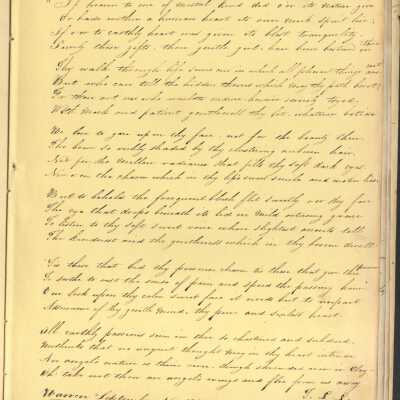 "If Heaven to one of mortal kind did e'er its nature give
Or bade within a human heart its own pure spirit live
If e'er to earthly heart was given its blest tranquility
Surely these gifts, thou gentle girl, have been bestowed on thee
Thy walk through life seems one in which all pleasant things are met
But who can tell the hidden thorns which may thy path beset?
For thou art one who wouldst endure however sorely tryed,
With meek and patient gentleness thy lot, whatever betide
We love to gaze upon thy face, not for the beauty there
The brow so softly shaded by thy clustering auburn hair,
Nor for the mellow radiance that fills thy soft dark eyes
Nor e'en the charm which in thy lips sweet smile and motion lies
But to behold the frequent blush flit sweetly o'er thy face
The eye that droops beneath its lid in mild retiring grace
To listen to thy soft sweet voice whose slightest accents tell
The kindness and the gentleness which in thy bosom dwell
'Tis these that lend thy presence charm to those that
To soothe to rest the sense of pain and speed the passing hour
One look upon thy calm sweet face it needs but to impart
Assurance of thy gentle mind, thy pure and sinless heart.
All earthly passions seem in thee so chastened and subdued,
Methinks that no unquiet thought may in thy heart intrude
An angels nature is thine own, though shrouded now in clay
Oh! take not then an angels wings and flee from us away
Warren